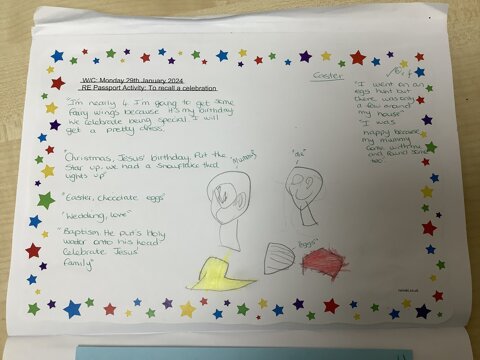 W/C: Monday 29th January 2024
RE Passport Activity: To recall a celebration
"I'm nearly 4. I'm going to get some
fairy wings because it's my birthday.
We celebrate being special. I will
get a pretty dress."
"Christmas, Jesus' birthday. Put the
star up. We had a snowflake that
lights up"
"Easter, chocolate eggs"
"Wedding, love"
"Baptism. He puts Holy
water onto his head
Celebrate Jesus'
family"
Easter
"I went on an
egg hunt but
there was only
a few around
my house"
"I was
happy because
my mummy
came with me
and found some
too."
"Mummy"
"Me"
"eggs"
twinkl.co.uk